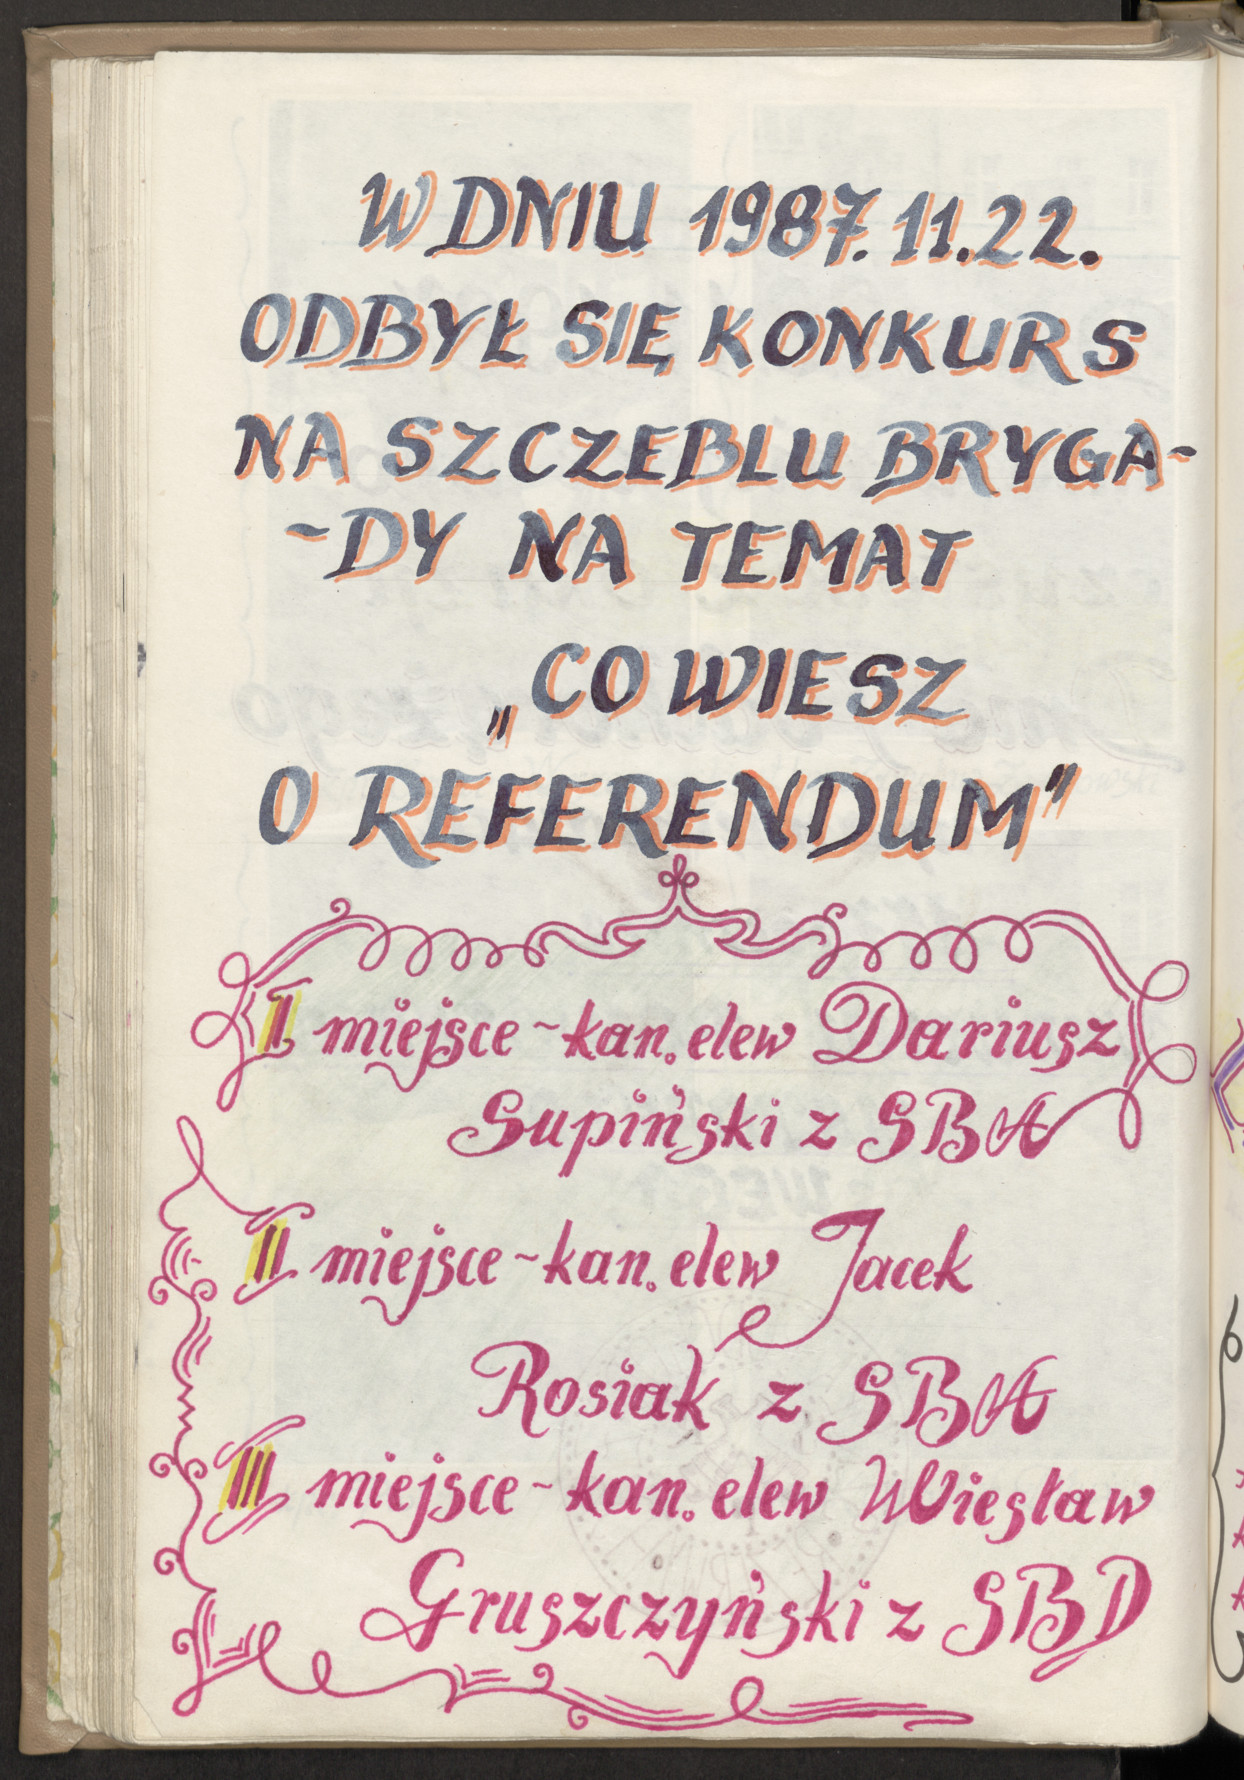 W DNIU 1987.11.22.
ODBYŁ SIĘ KONKURS
NA SZCZEBLU BRYGA-
-DY NA TEMAT
„CO WIESZ
O REFERENDUM"
I miejsce ~ kan. elew Dariusz
Supiński z SBA
II miejsce ~ kan. elew Jacek
Rosiak z SBA
III miejsce ~ kan. elew Wiesław
Gruszczyński z SBD